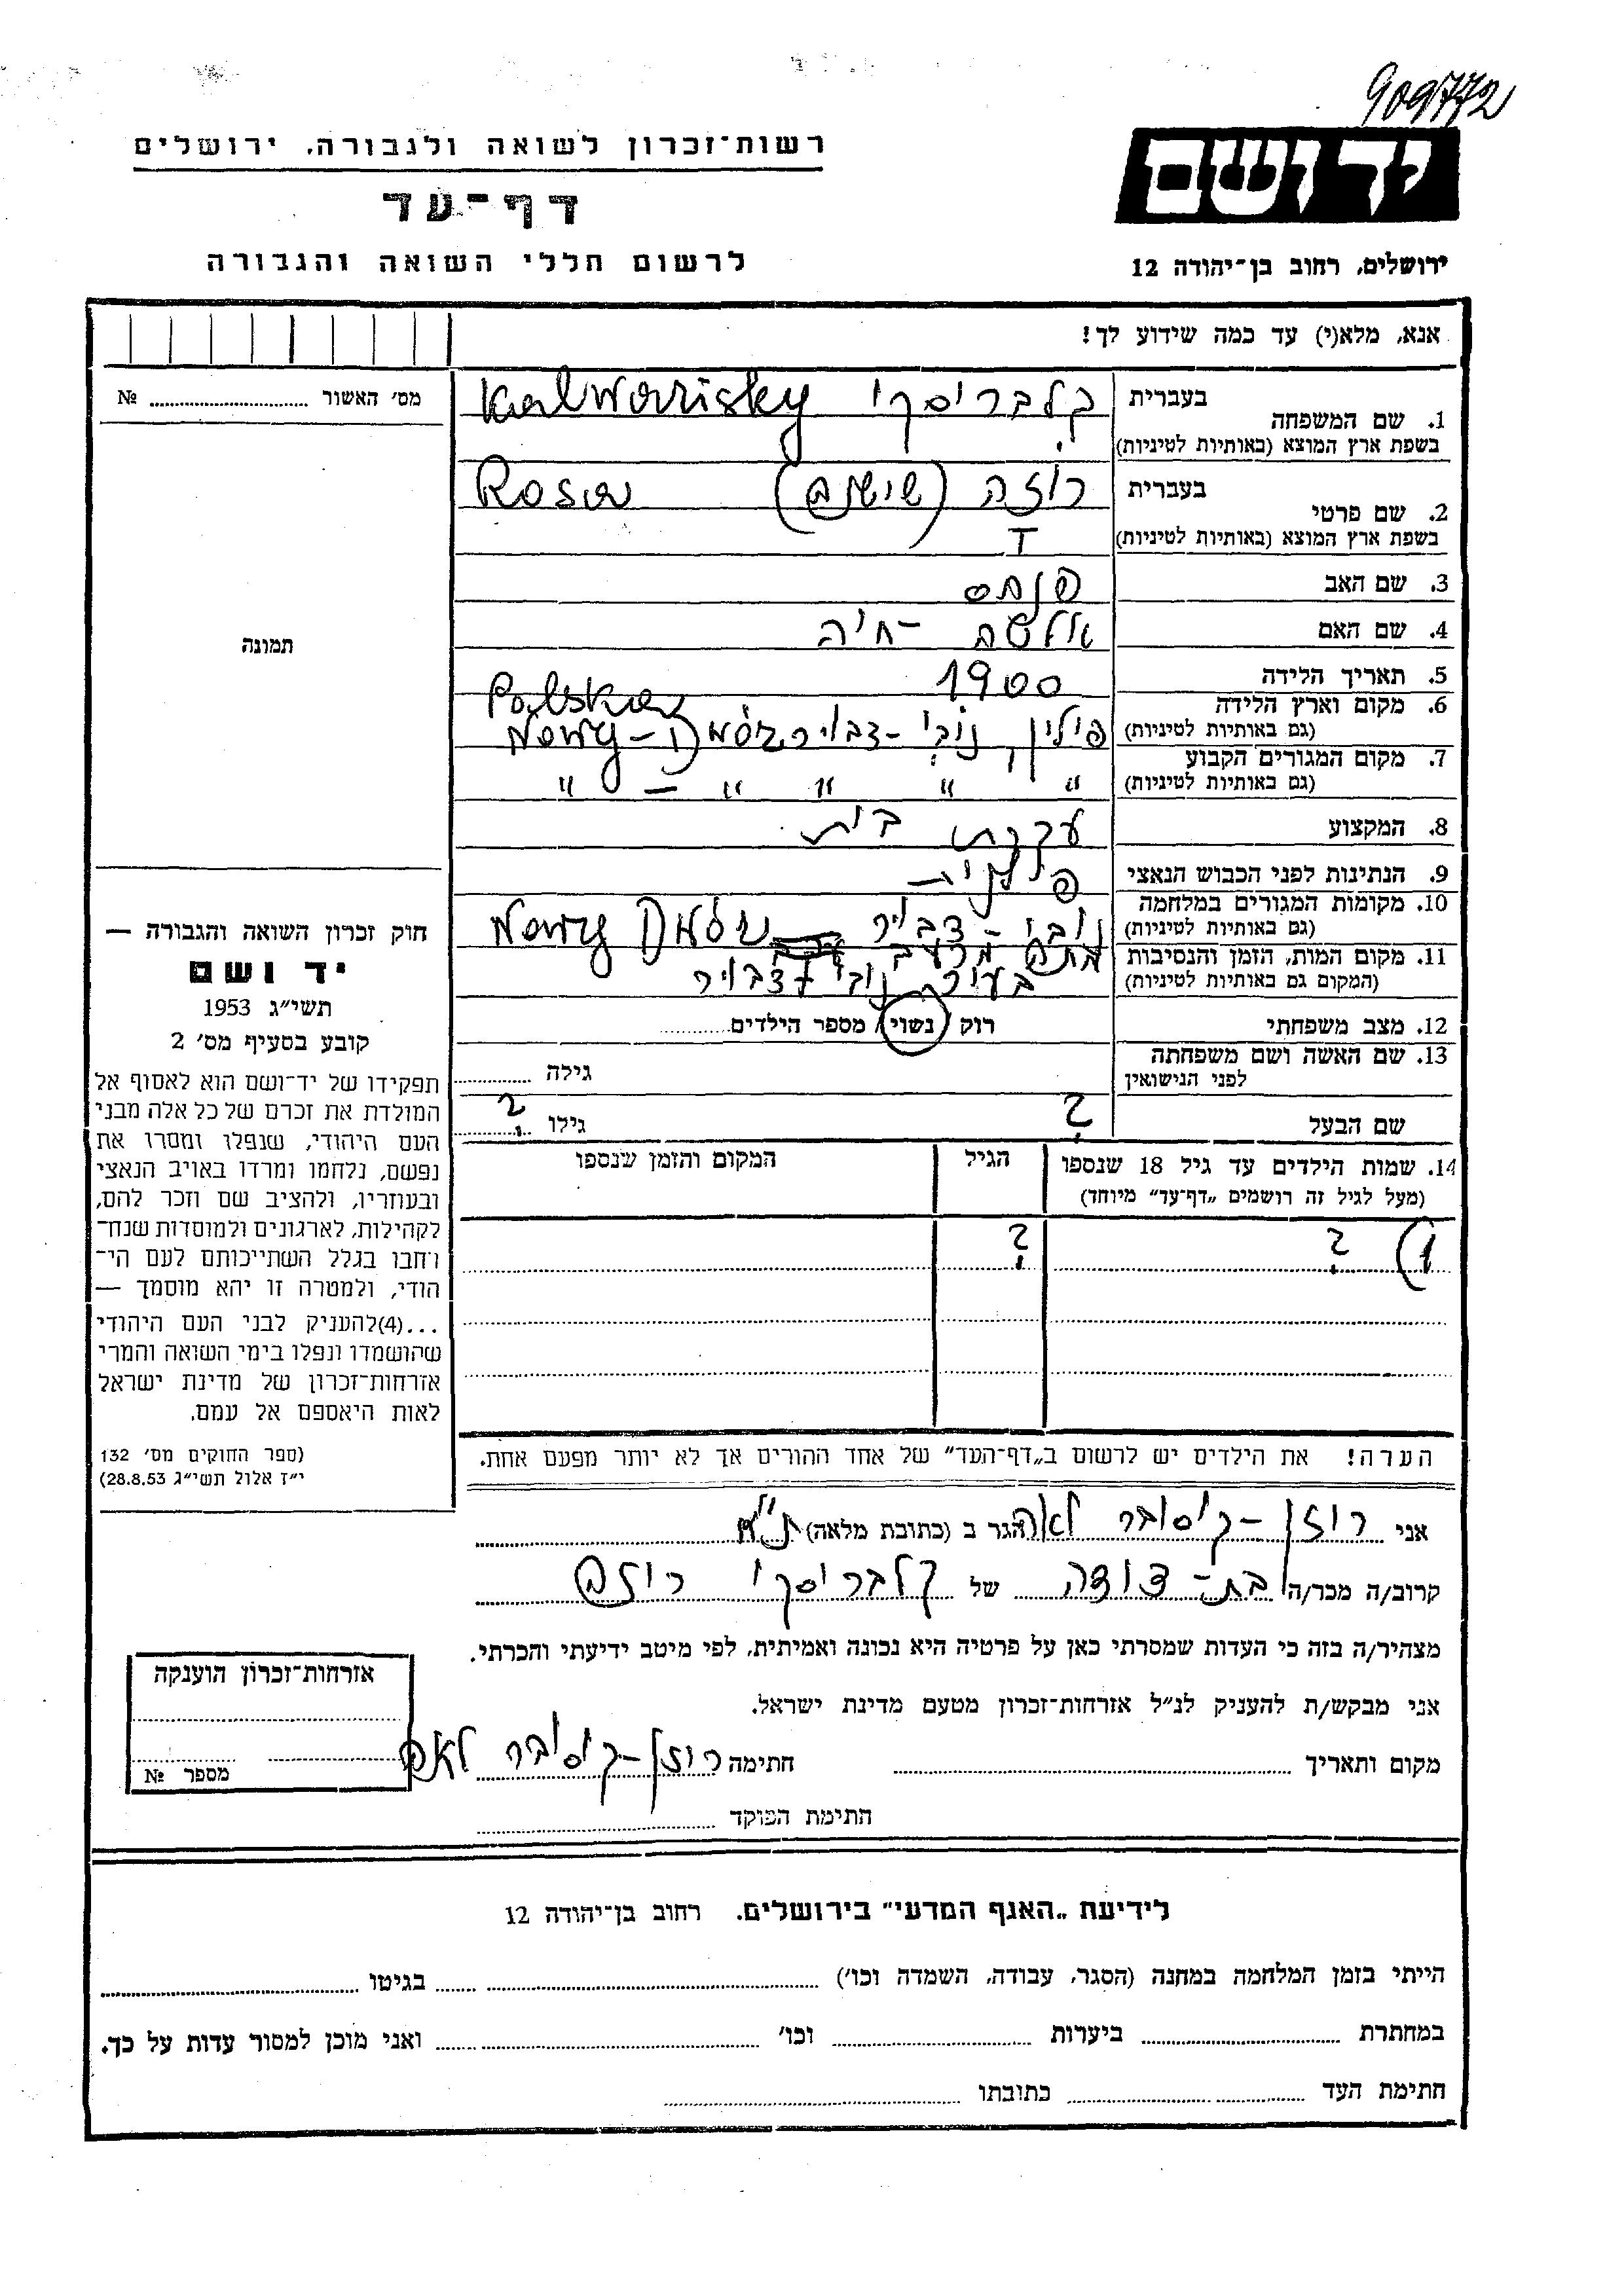 909772
יד ושם
רשות־זכרון לשואה ולגבורה, ירושלים
דף־עד
לרשום חללי השואה והגבורה
ירושלים, רחוב בן־יהודה 12
אנא, מלא(י) עד כמה שידוע לך!
מס׳ האשור № ........
תמונה
1. שם המשפחה
בעברית קלבריסקי Kalwarisky
בשפת ארץ המוצא (באותיות לטיניות)
2. שם פרטי
בעברית רוזה (שושנה) Rosa
בשפת ארץ המוצא (באותיות לטיניות)
3. שם האב פנחס
4. שם האם חיה
5. תאריך הלידה 1900
6. מקום וארץ הלידה Polska
(גם באותיות לטיניות) פולין, נובי-דבויר Nowy-Dwór
7. מקום המגורים הקבוע
(גם באותיות לטיניות) " " " " — "
8. המקצוע עקרת בית
9. הנתינות לפני הכבוש הנאצי פולנית
10. מקומות המגורים במלחמה
(גם באותיות לטיניות) נובי-דבויר Nowy Dwór
11. מקום המות, הזמן והנסיבות מתה מרעב
(המקום גם באותיות לטיניות) בעיר נובי דבויר
12. מצב משפחתי רוק / נשוי / מספר הילדים ........
13. שם האשה ושם משפחתה
לפני הנישואין גילה ........
שם הבעל ? גילו ?
14. שמות הילדים עד גיל 18 שנספו הגיל המקום והזמן שנספו
(מעל לגיל זה רושמים „דף־עד״ מיוחד)
1) ? ?
הערה! את הילדים יש לרשום ב„דף־העד״ של אחד ההורים אך לא יותר מפעם אחת.
חוק זכרון השואה והגבורה —
יד ושם
תשי״ג 1953
קובע בסעיף מס׳ 2
תפקידו של יד־ושם הוא לאסוף אל
המולדת את זכרם של כל אלה מבני
העם היהודי, שנפלו ומסרו את
נפשם, נלחמו ומרדו באויב הנאצי
ובעוזריו, ולהציב שם וזכר להם,
לקהילות, לארגונים ולמוסדות שנח־
רחבו בגלל השתייכותם לעם הי־
הודי, ולמטרה זו יהא מוסמך —
...(4)להעניק לבני העם היהודי
שהושמדו ונפלו בימי השואה והמרי
אזרחות־זכרון של מדינת ישראל
לאות היאספם אל עמם.
(ספר החוקים מס׳ 132
י״ז אלול תשי״ג 28.8.53)
אני רוזן-קיסובר לאה הגר ב (כתובת מלאה) ת״א
קרוב/ה מכר/ה בת-דודה של קלבריסקי רוזה
מצהיר/ה בזה כי העדות שמסרתי כאן על פרטיה היא נכונה ואמיתית, לפי מיטב ידיעתי והכרתי.
אני מבקש/ת להעניק לנ״ל אזרחות־זכרון מטעם מדינת ישראל.
מקום ותאריך ........ חתימה רוזן-קיסובר לאה
חתימת הפוקד ........
אזרחות־זכרון הוענקה
מספר №
לידיעת „האגף המדעי״ בירושלים. רחוב בן־יהודה 12
הייתי בזמן המלחמה במחנה (הסגר, עבודה, השמדה וכו׳) ........ בגיטו ........
במחתרת ........ ביערות ........ וכו׳ ........ ואני מוכן למסור עדות על כך.
חתימת העד ........ כתובתו ........